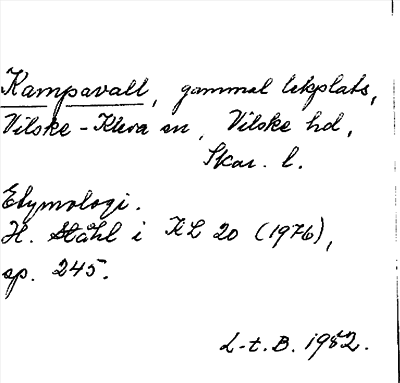 Kampavall, gammal lekplats,
Vilske-Kleva sn, Vilske hd,
Skar. l.
Etymologi.
H. Ståhl i KL 20 (1976),
sp. 245.
L-t.B. 1982.